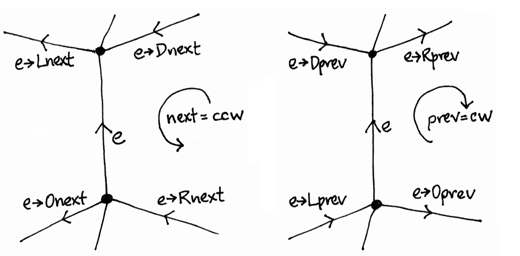 e→Lnext
e→Dnext
next=ccw
e
e→Onext
e→Rnext
e→Dprev
e→Rprev
prev=cw
e
e→Lprev
e→Oprev